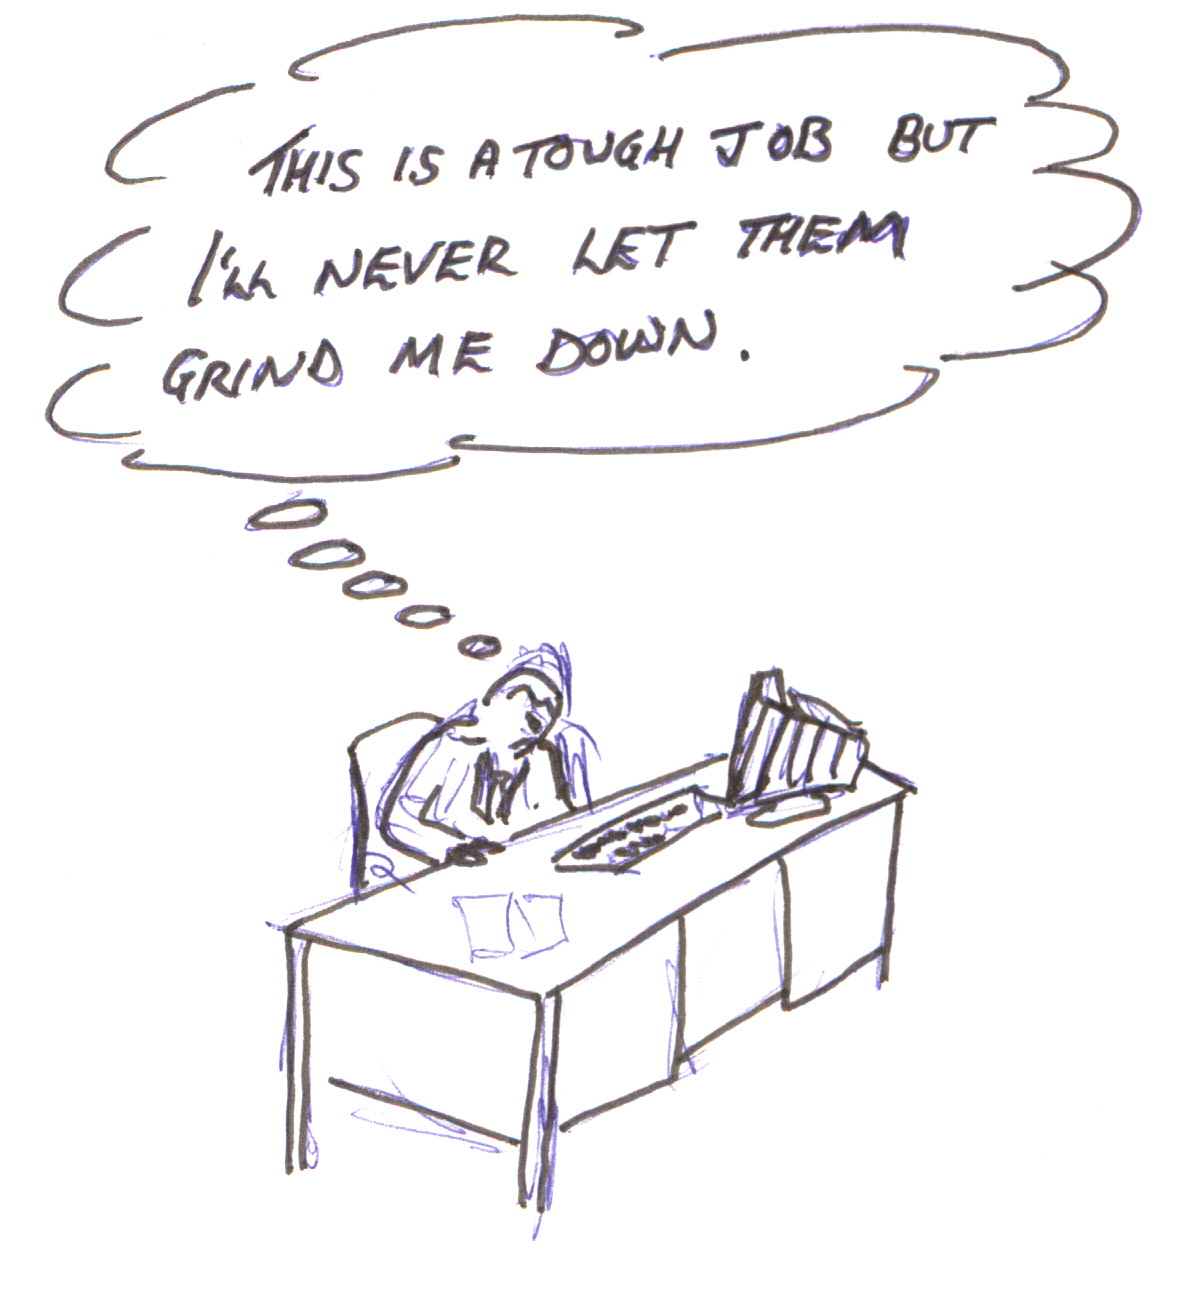 THIS IS A TOUGH JOB BUT
I'LL NEVER LET THEM
GRIND ME DOWN.